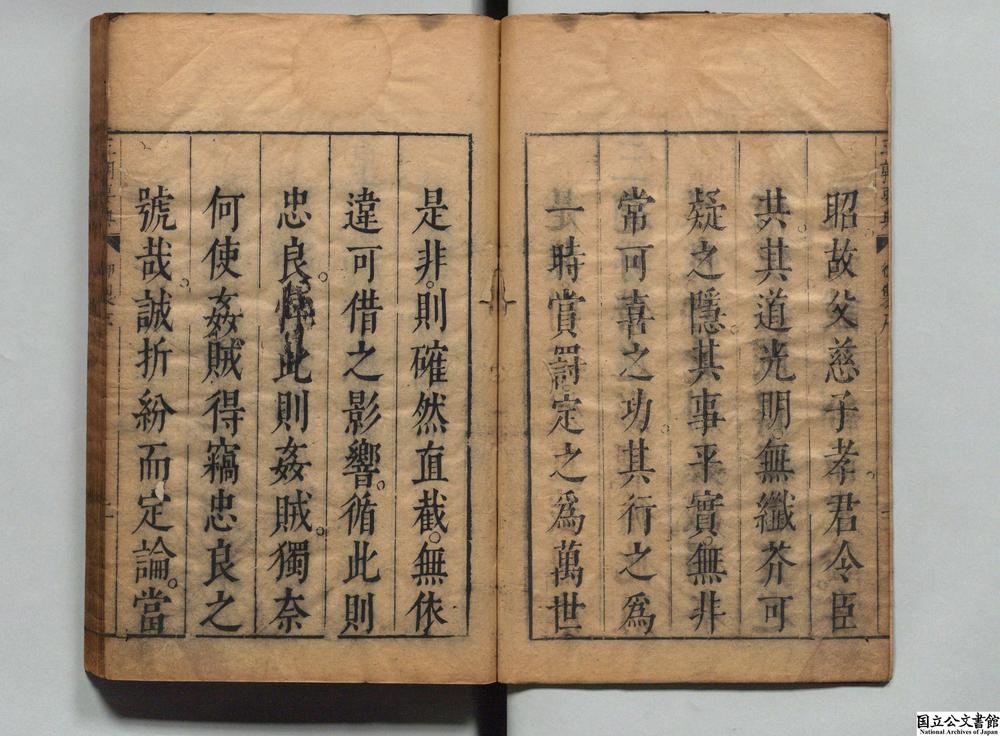 昭故父慈子孝。君令臣
共。其道光明。無纖芥可
疑之隱。其事平實。無非
常可喜之功。其行之為
一時賞罰。定之為萬世
是非。則確然直截。無依
違可借之影響。循此則
忠良。悖此則姦賊。獨奈
何使姦賊得竊忠良之
號哉。誠折紛而定論。當
三朝要典
国立公文書館
National Archives of Japan